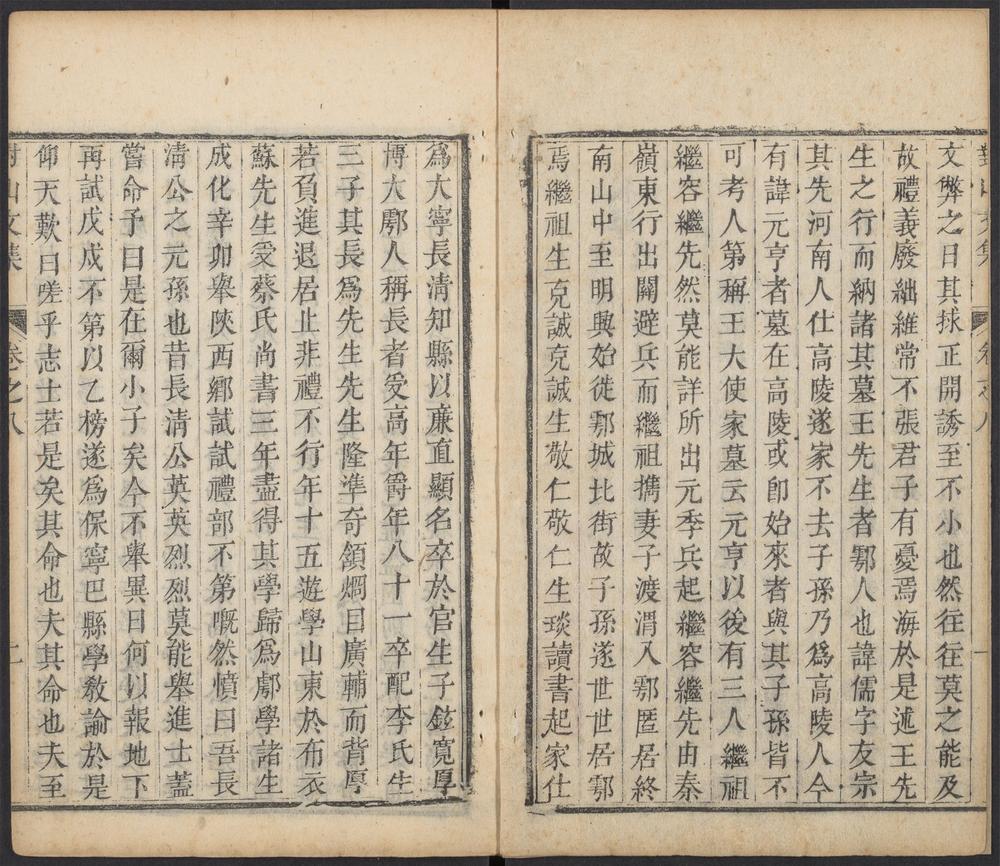 文集
卷之八
一
文弊之日其捄正開誘至不小也然往往莫之能及
故禮義廢絀維常不張君子有憂焉海於是述王先
生之行而納諸其墓王先生者鄠人也諱儒字友宗
其先河南人仕高陵遂家不去子孫乃為高陵人今
有諱元亨者墓在高陵或卽始來者與其子孫皆不
可考人第稱王大使家墓云元亨以後有三人繼祖
繼容繼先然莫能詳所出元季兵起繼容繼先由秦
嶺東行出關避兵而繼祖擕妻子渡渭入鄠匿居終
南山中至明興始徙鄠城北街故子孫遂世世居鄠
焉繼祖生克誠克誠生敬仁敬仁生琰讀書起家仕
為大寧長清知縣以亷直顯名卒於官生子鉉寬厚
博大鄠人稱長者受高年爵年八十一卒配李氏生
三子其長為先生先生隆凖奇頟烱目廣輔而背厚
若負進退居止非禮不行年十五遊學山東於布衣
蘇先生受蔡氏尚書三年盡得其學歸為鄠學諸生
成化辛卯舉陜西鄉試試禮部不第嘅然憤曰吾長
清公之元孫也昔長清公英英烈烈莫能舉進士蓋
嘗命予曰是在爾小子矣今不舉異日何以報地下
再試戊戌不第以乙榜遂為保寧巴縣學教諭於是
仰天歎曰嗟乎志士若是矣其命也夫其命也夫至
對山文集
卷之八
二